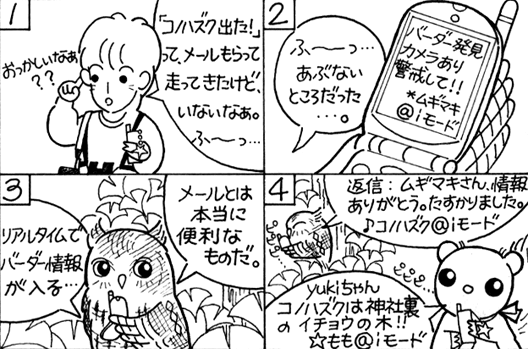 1
「コノハズク出た!」
って、メールもらって
走ってきたけど、
いないなぁ。
ふ〜〜っ…
おっかしいなぁ
??
2
ふ〜〜っ…
あぶない
ところだった
…。
バーダー発見
カメラあり
警戒して!!
*ムギマキ
@iモード
3
メールとは
本当に
便利な
ものだ。
リアルタイムで
バーダー情報
が入る…
4
返信:ムギマキさん、情報
ありがとう。たすかりました。
♪コノハズク@iモード
yukiちゃん
コノハズクは神社裏
のイチョウの木!!
☆もも@iモード